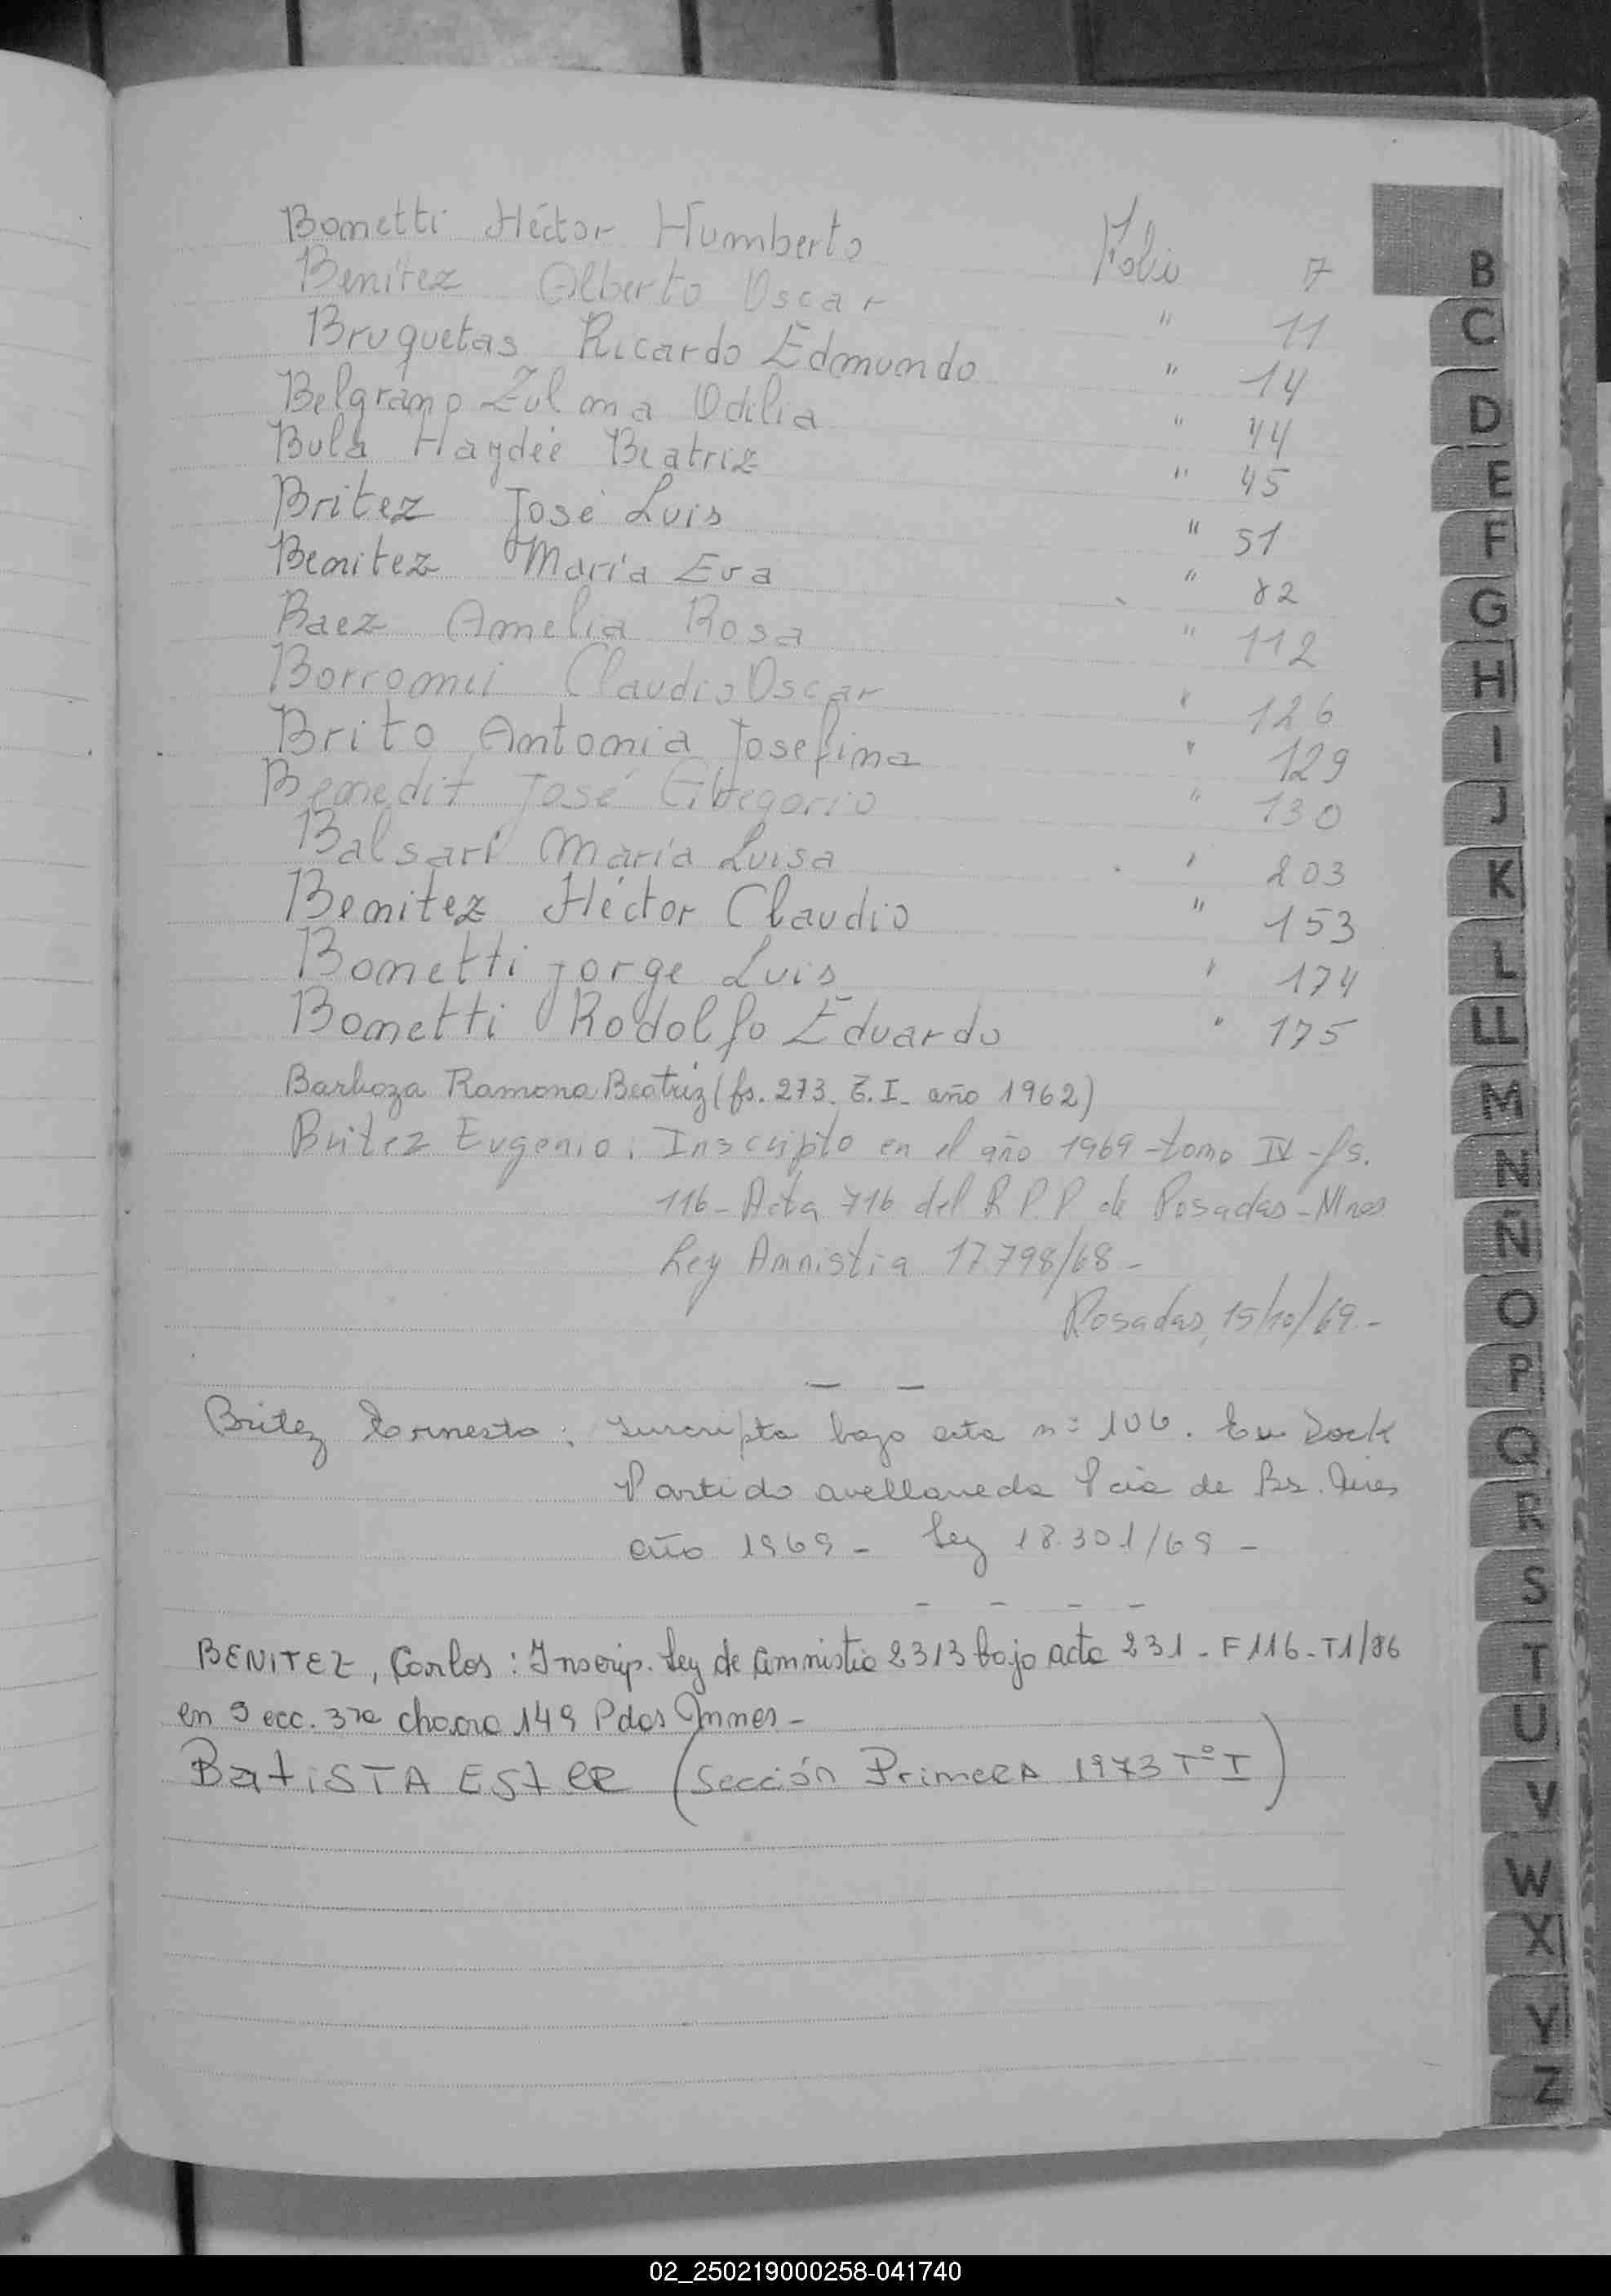 Bonetti Héctor Humberto Folio 7
Benítez Alberto Oscar " 11
Bruquetas Ricardo Edmundo " 14
Belgrano Zulma Odilia " 44
Bula Haydeé Beatriz " 45
Britez José Luis " 51
Benitez María Eva " 82
Baez Amelia Rosa " 112
Borromei Claudio Oscar " 126
Brito Antonia Josefina " 129
Benedit José Gregorio " 130
Balsari María Luisa " 203
Benitez Héctor Claudio " 153
Bonetti Jorge Luis " 174
Bonetti Rodolfo Eduardo " 175
Barboza Ramona Beatriz (fs. 273. T. I. año 1962)
Britez Eugenio: Inscripto en el año 1969 - tomo IV - fs.
116 - Acta 716 del R.P.P. de Posadas - Mnes
Ley Amnistia 17798/68 -
Posadas, 15/10/69. -
Britez Ernesto: Inscripta bajo acta nº 106. En Dock
Partido avellaneda Pcia de Bs. Aires
año 1969 - Ley 18.301/69 -
BENITEZ, Carlos: Inscrip. Ley de amnistia 2313 bajo acta 231 - F116 - T1/86
en Secc. 3ra chacra 149 Pdas Mnes -
BatiSTA EStER (Sección PrimeRA 1973 Tº I)
B
C
D
E
F
G
H
I
J
K
L
LL
M
N
Ñ
O
P
Q
R
S
T
U
V
W
X
Y
Z
02_250219000258-041740